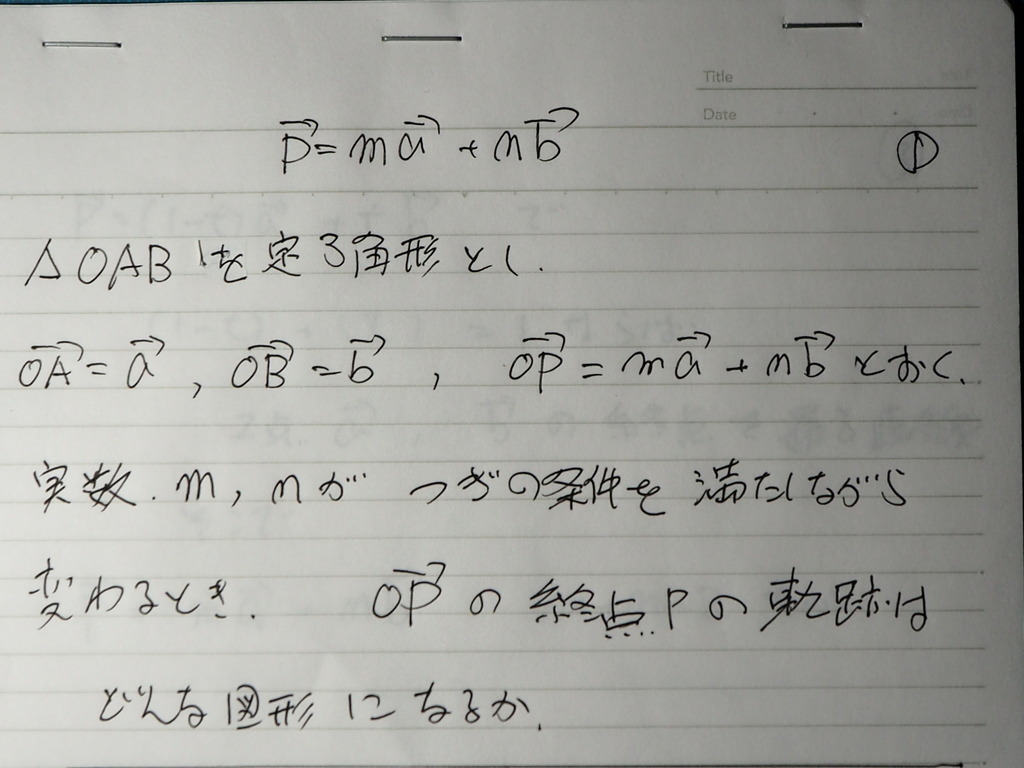 Title
Date
p⃗ = ma⃗ + nb⃗ ①
△OABを定3角形とし.
OA⃗ = a⃗ , OB⃗ = b⃗ , OP⃗ = ma⃗ + nb⃗ とおく.
実数. m, nが つぎの条件を 満たしながら
変わるとき. OP⃗ の 終点 P の 軌跡は
どんな図形 になるか.